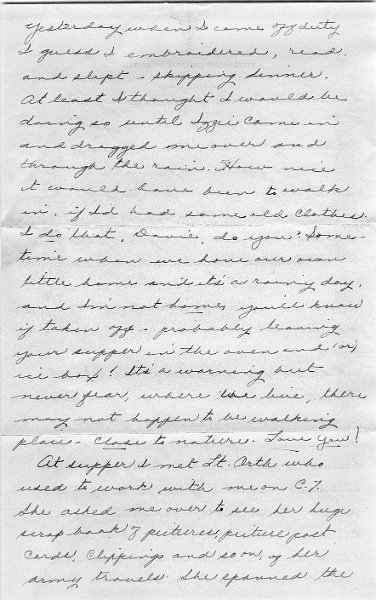 Yesterday when I came off duty
I guess I embroidered, read,
and slept - skipping dinner.
At least I thought I would be
doing so until Izzie came in
and dragged me over and
through the rain. How nice
it would have been to walk
in, if I'd had some old clothes.
I do that, Davie, do you? Some-
time when we have our own
little home and it's a rainy day,
and I'm not home, you'll know
if taken off - probably leaving
your supper in the oven and (or)
ice box! It's a warning but
never fear, where we live, there
may not happen to be walking
place - close to nature. Love you!
At supper I met Lt. Orth who
used to work with me on C.7.
She asked me over to see her huge
scrap book of pictures, picture post
cards, clippings and so on, of her
army travels. She spanned the